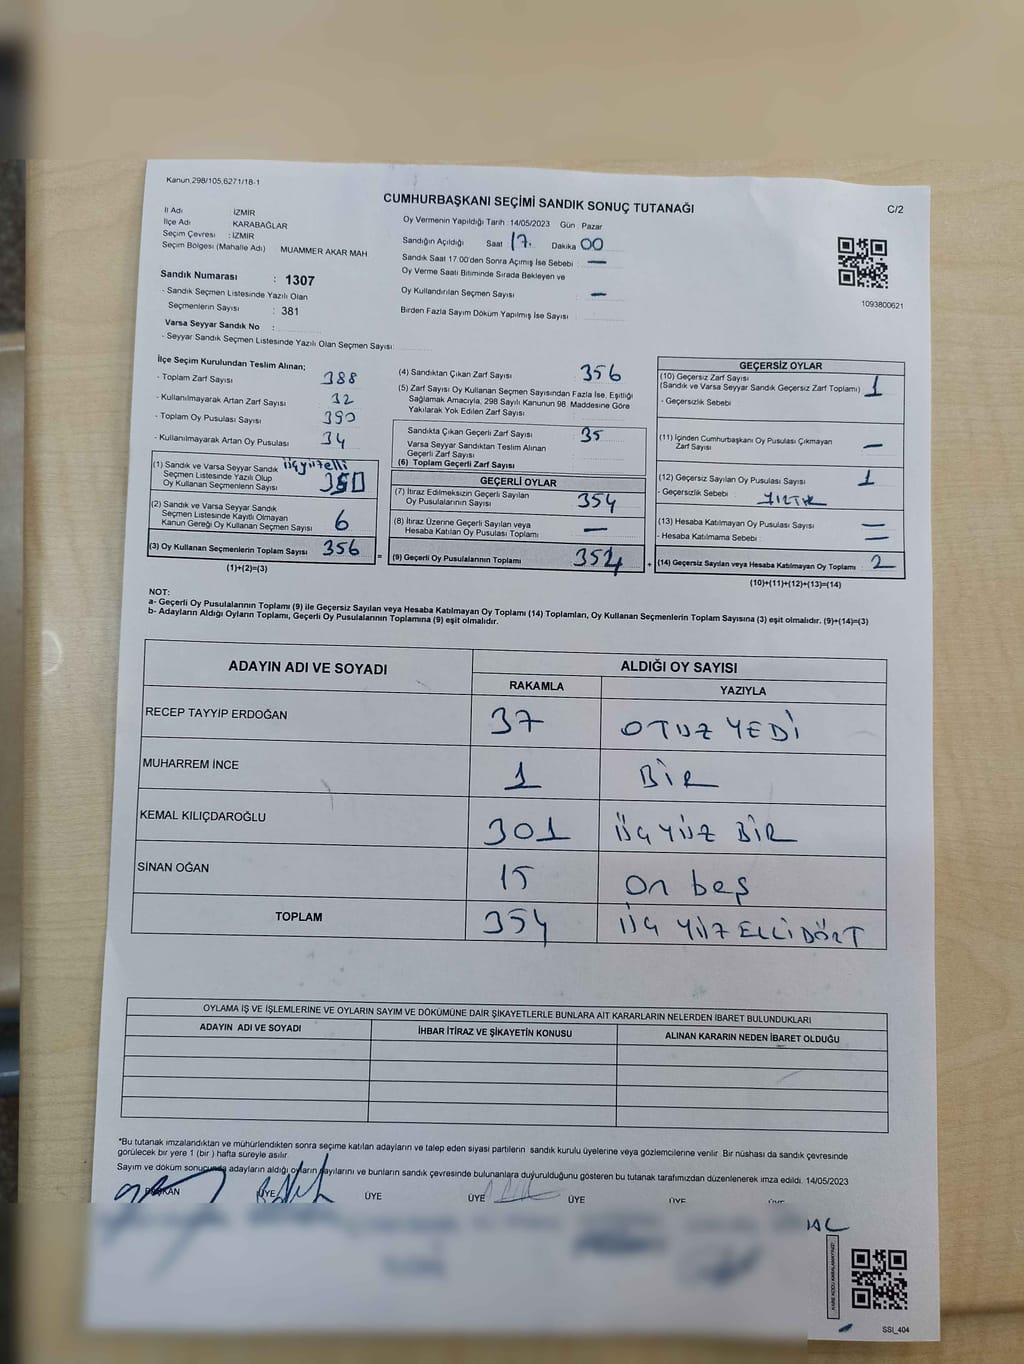 Kanun,298/105,6271/18-1
CUMHURBAŞKANI SEÇİMİ SANDIK SONUÇ TUTANAĞI
C/2
İl Adı İZMİR
İlçe Adı KARABAĞLAR
Seçim Çevresi : İZMİR
Seçim Bölgesi (Mahalle Adı) MUAMMER AKAR MAH
Oy Vermenin Yapıldığı Tarih :14/05/2023 Gün Pazar
Sandığın Açıldığı Saat 17. Dakika 00
Sandık Saat 17:00'den Sonra Açımış İse Sebebi : —
Oy Verme Saati Bitiminde Sırada Bekleyen ve
Oy Kullandırılan Seçmen Sayısı : —
Birden Fazla Sayım Döküm Yapılmış İse Sayısı
1093800621
Sandık Numarası : 1307
- Sandık Seçmen Listesinde Yazılı Olan
Seçmenlerin Sayısı : 381
Varsa Seyyar Sandık No :
- Seyyar Sandık Seçmen Listesinde Yazılı Olan Seçmen Sayısı:
İlçe Seçim Kurulundan Teslim Alınan;
- Toplam Zarf Sayısı 388
- Kullanılmayarak Artan Zarf Sayısı 32
- Toplam Oy Pusulası Sayısı 390
- Kullanılmayarak Artan Oy Pusulası 34
(1) Sandık ve Varsa Seyyar Sandık üçyüzelli
Seçmen Listesinde Yazılı Olup
Oy Kullanan Seçmenlerin Sayısı 350
(2) Sandık ve Varsa Seyyar Sandık
Seçmen Listesinde Kayıtlı Olmayan
Kanun Gereği Oy Kullanan Seçmen Sayısı 6
(3) Oy Kullanan Seçmenlerin Toplam Sayısı 356
(1)+(2)=(3)
(4) Sandıktan Çıkan Zarf Sayısı 356
(5) Zarf Sayısı Oy Kullanan Seçmen Sayısından Fazla İse, Eşitliği
Sağlamak Amacıyla, 298 Sayılı Kanunun 98. Maddesine Göre
Yakılarak Yok Edilen Zarf Sayısı
Sandıkta Çıkan Geçerli Zarf Sayısı 35
Varsa Seyyar Sandıktan Teslim Alınan
Geçerli Zarf Sayısı
(6) Toplam Geçerli Zarf Sayısı
GEÇERLİ OYLAR
(7) İtiraz Edilmeksizin Geçerli Sayılan
Oy Pusulalarının Sayısı 354
(8) İtiraz Üzerine Geçerli Sayılan veya
Hesaba Katılan Oy Pusulası Toplamı —
= (9) Geçerli Oy Pusulalarının Toplamı 354
GEÇERSİZ OYLAR
(10) Geçersiz Zarf Sayısı
(Sandık ve Varsa Seyyar Sandık Geçersiz Zarf Toplamı) 1
- Geçersizlik Sebebi
(11) İçinden Cumhurbaşkanı Oy Pusulası Çıkmayan
Zarf Sayısı —
(12) Geçersiz Sayılan Oy Pusulası Sayısı 1
- Geçersizlik Sebebi : YIRTIK
(13) Hesaba Katılmayan Oy Pusulası Sayısı —
- Hesaba Katılmama Sebebi : —
+ (14) Geçersiz Sayılan veya Hesaba Katılmayan Oy Toplamı 2
(10)+(11)+(12)+(13)=(14)
NOT:
a- Geçerli Oy Pusulalarının Toplamı (9) ile Geçersiz Sayılan veya Hesaba Katılmayan Oy Toplamı (14) Toplamları, Oy Kullanan Seçmenlerin Toplam Sayısına (3) eşit olmalıdır. (9)+(14)=(3)
b- Adayların Aldığı Oyların Toplamı, Geçerli Oy Pusulalarının Toplamına (9) eşit olmalıdır.
ADAYIN ADI VE SOYADI ALDIĞI OY SAYISI
RAKAMLA YAZIYLA
RECEP TAYYİP ERDOĞAN 37 OTUZ YEDİ
MUHARREM İNCE 1 BİR
KEMAL KILIÇDAROĞLU 301 ÜÇ YÜZ BİR
SİNAN OĞAN 15 On beş
TOPLAM 354 ÜÇ YÜZ ELLİ DÖRT
OYLAMA İŞ VE İŞLEMLERİNE VE OYLARIN SAYIM VE DÖKÜMÜNE DAİR ŞİKAYETLERLE BUNLARA AİT KARARLARIN NELERDEN İBARET BULUNDUKLARI
ADAYIN ADI VE SOYADI İHBAR İTİRAZ VE ŞİKAYETİN KONUSU ALINAN KARARIN NEDEN İBARET OLDUĞU
*Bu tutanak imzalandıktan ve mühürlendikten sonra seçime katılan adayların ve talep eden siyasi partilerin sandık kurulu üyelerine veya gözlemcilerine verilir. Bir nüshası da sandık çevresinde
görülecek bir yere 1 (bir ) hafta süreyle asılır.
Sayım ve döküm sonucunda adayların aldığı oyların sayılarını ve bunların sandık çevresinde bulunanlara duyurulduğunu gösteren bu tutanak tarafımızdan düzenlenerek imza edildi. 14/05/2023
BAŞKAN ÜYE ÜYE ÜYE ÜYE ÜYE
SSİ_404